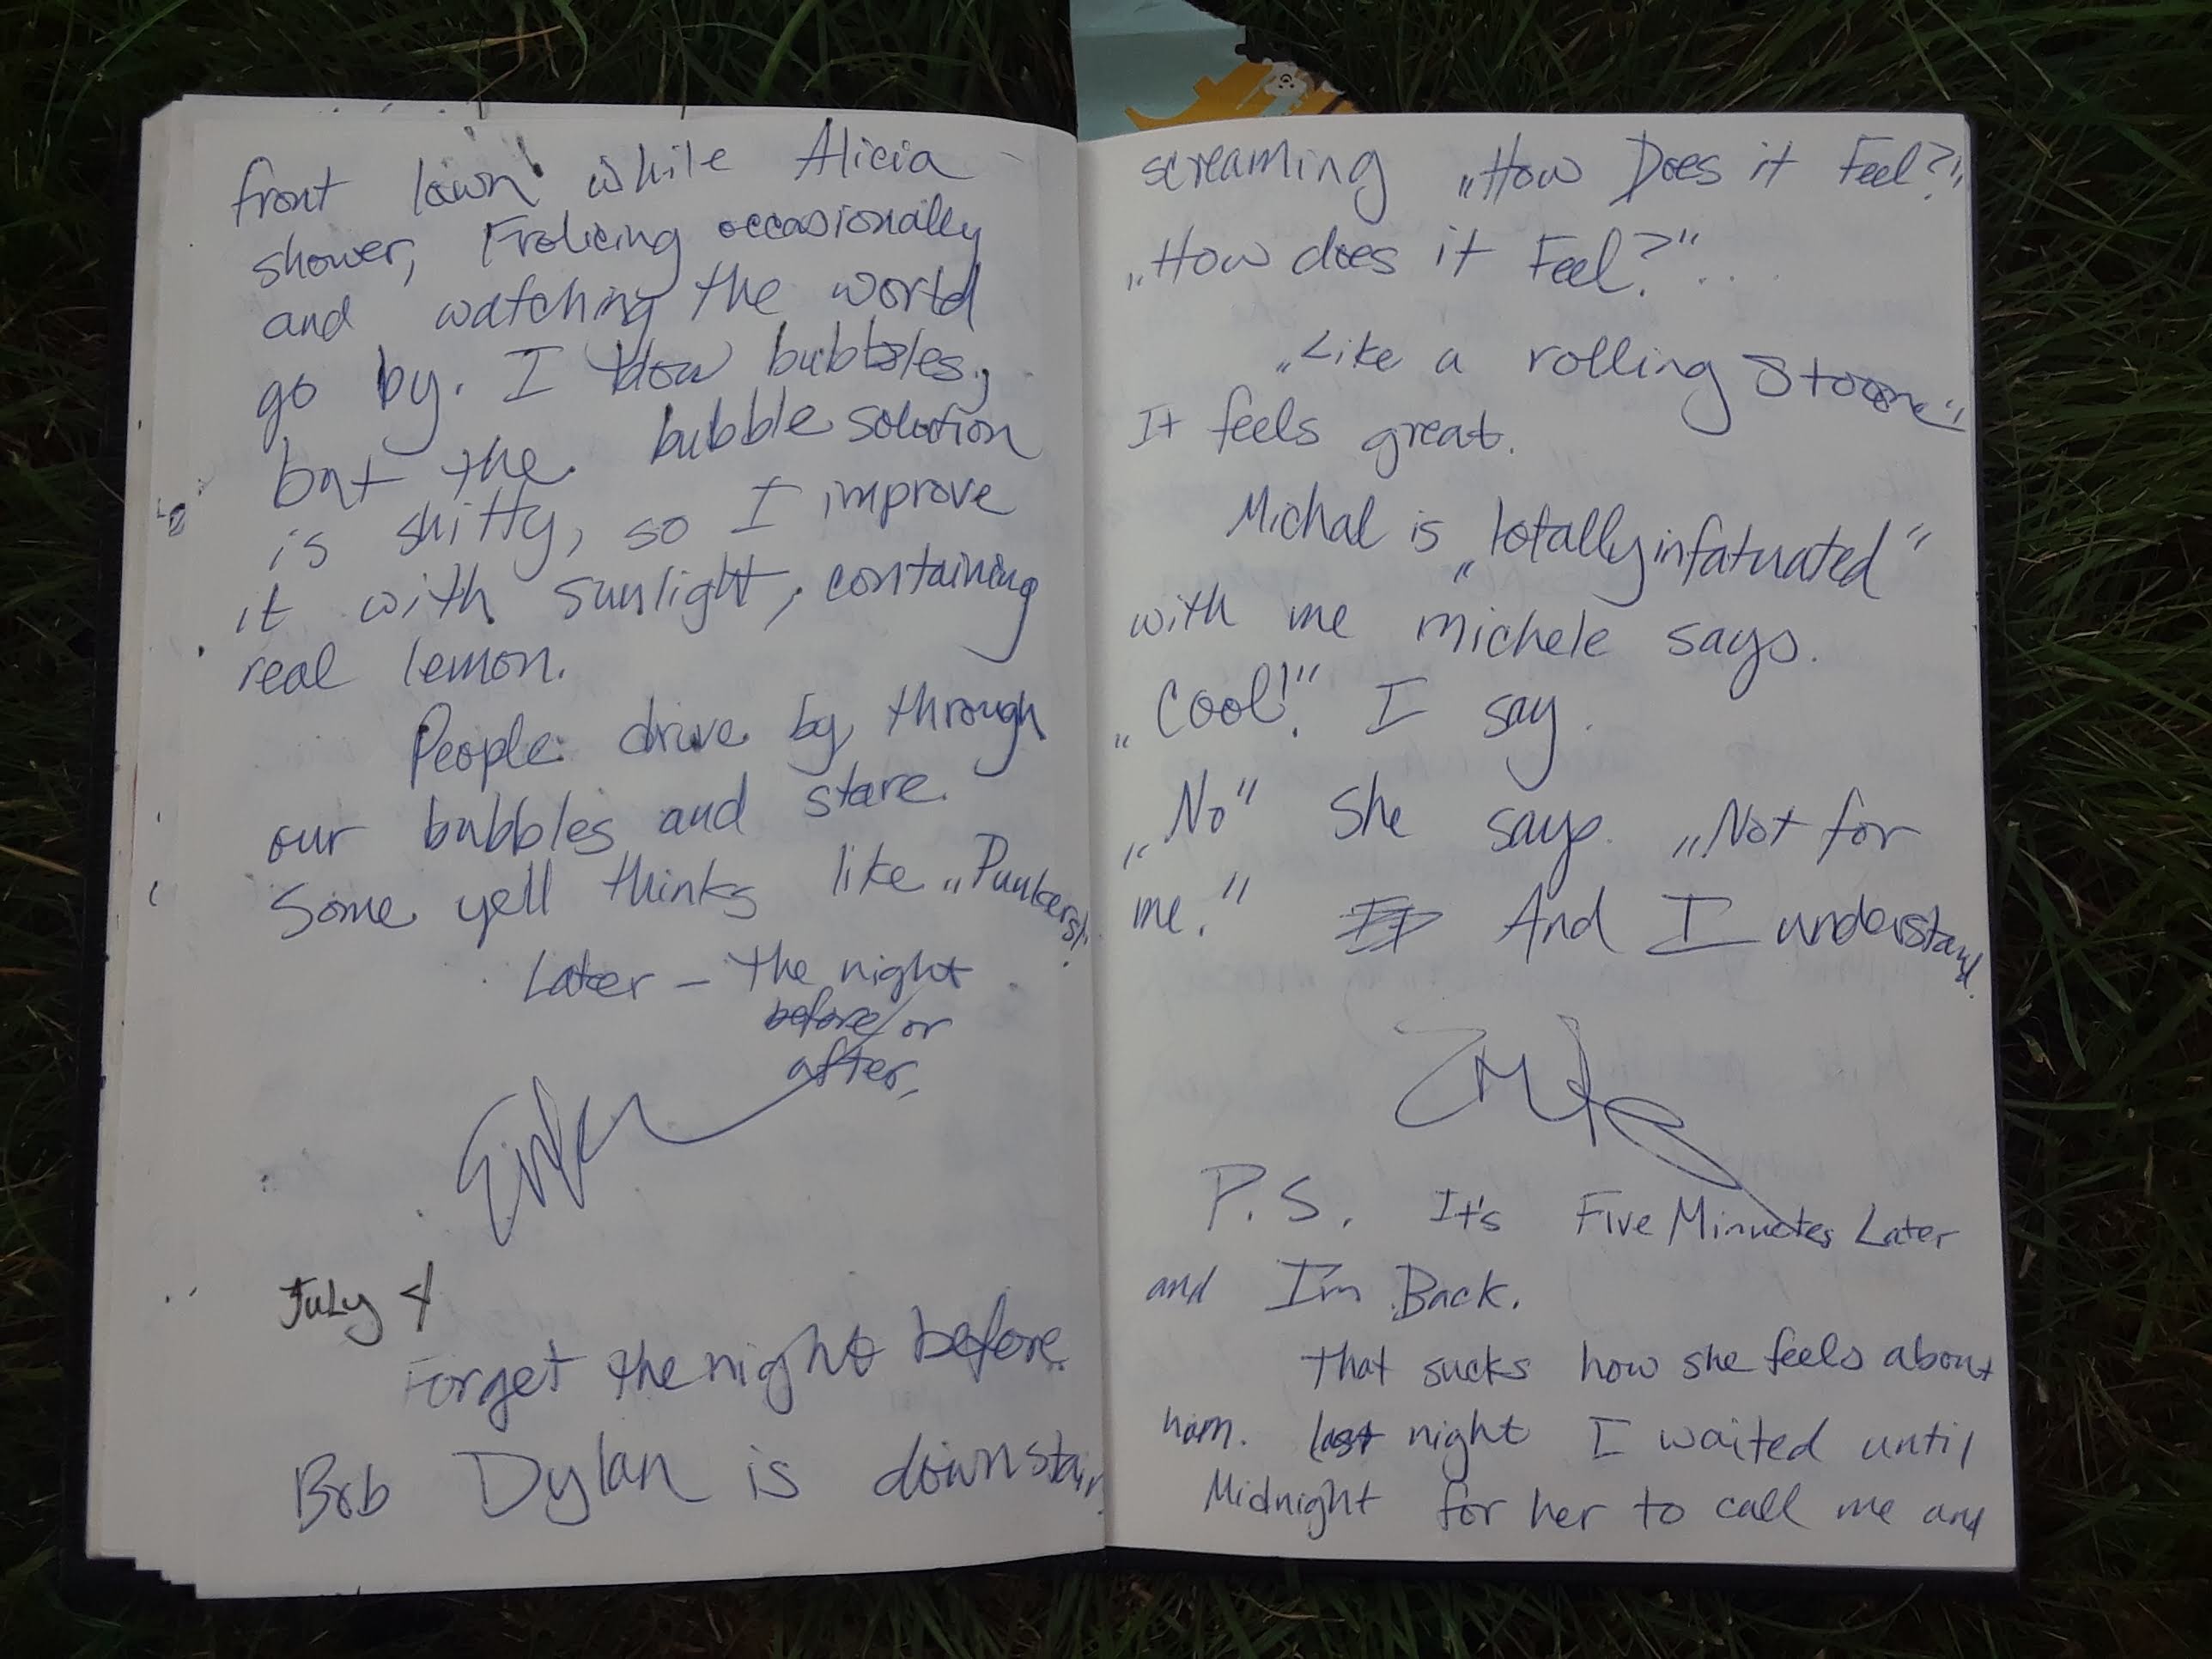 front lawn while Alicia
shower, Frolicing occasionally
and watching the world
go by. I blow bubbles,
but the bubble solution
is shitty, so I improve
it with sunlight, containing
real lemon.
People drive by through
our bubbles and stare.
Some yell thinks like „Punkers!"
Later – the night
before/or
after,
July 4
Forget the night before.
Bob Dylan is downstair
screaming „How Does it Feel?!"
„How does it Feel?"...
„Like a rolling Stooone"!
It feels great.
Michal is „totally infatuated"
with me michele says.
„Cool!" I say.
„No" She says. „Not for
me." And I understand.
P.S. It's Five Minuetes Later
and I'm Back.
That sucks how she feels about
him. last night I waited until
Midnight for her to call me and